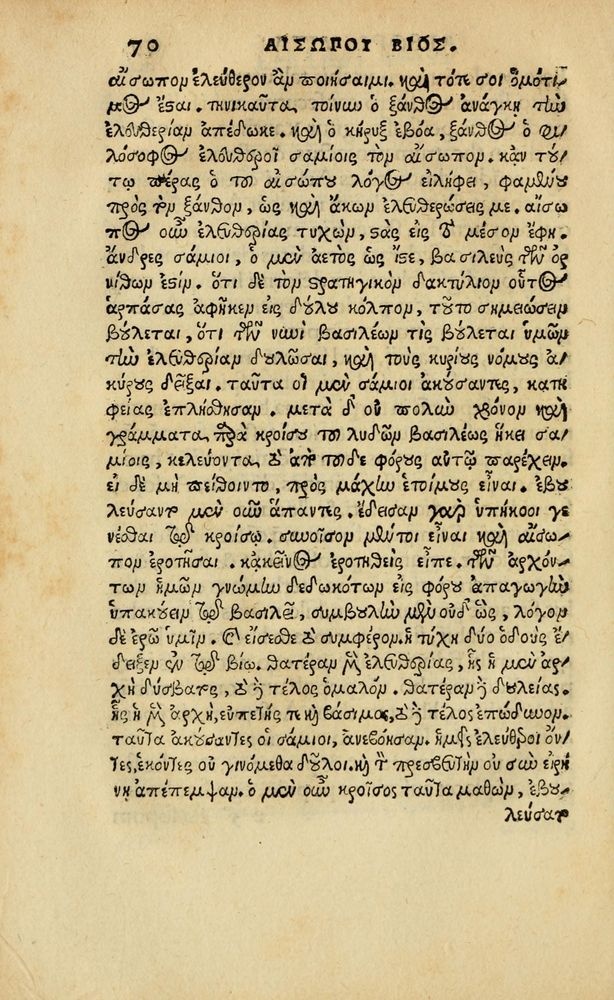 70 ΑΙΣΩΠΟΥ ΒΙΟΣ.
αἴσωπον ἐλεύθερον ἂν ποιήσαιμι. καὶ τότε σοι ὁμότι-
μος ἔσαι. τηνικαῦτα τοίνυν ὁ ξάνθος ἀνάγκῃ τὴν
ἐλευθερίαν ἀπέδωκε. καὶ ὁ κῆρυξ ἐβόα, ξάνθος ὁ φι-
λόσοφος ἐλευθεροῖ σαμίοις τὸν αἴσωπον. κᾂν τού-
τῳ πέρας ὁ τοῦ αἰσώπου λόγος εἰλήφει, φαμένου
πρὸς τὸν ξάνθον, ὡς καὶ ἄκων ἐλευθερώσεις με. αἴσω-
πος οὖν ἐλευθερίας τυχὼν, στὰς εἰς τὸ μέσον ἔφη.
ἄνδρες σάμιοι, ὁ μὲν ἀετὸς ὡς ἴστε, βασιλεὺς τῶν ὀρ-
νίθων ἐστίν. ὅτι δὲ τὸν στρατηγικὸν δακτύλιον οὗτος
ἁρπάσας ἀφῆκεν εἰς δούλου κόλπον, τοῦτο σημειώσειν
βούλεται, ὅτι τῶν νυνὶ βασιλέων τὶς βούλεται ὑμῶν
τὴν ἐλευθερίαν δουλῶσαι, καὶ τοὺς κυρίους νόμους ἀ-
κύρους δεῖξαι. ταῦτα οἱ μὲν σάμιοι ἀκούσαντες, κατη-
φείας ἐπλήθησαν. μετὰ δ' οὐ πολὺν χρόνον καὶ
γράμματα παρὰ κροίσου τοῦ λυδῶν βασιλέως ἧκει σα-
μίοις, κελεύοντα τὸ ἀπὸ τοῦδε φόρους αὐτῷ παρέχειν.
εἰ δὲ μὴ πείθοιντο, πρὸς μάχην ἑτοίμους εἶναι. ἐβου-
λεύσαντο μὲν οὖν ἅπαντες. ἔδεισαν γὰρ ὑπήκοοι γε-
νέσθαι τῷ κροίσῳ. συνοῖσον μέντοι εἶναι καὶ αἴσω-
πον ἐρωτῆσαι. κἀκεῖνος ἐρωτηθεὶς εἶπε. τῶν ἀρχόν-
των ἡμῶν γνώμην δεδωκότων εἰς φόρου ἀπαγωγὴν
ὑπακούειν τῷ βασιλεῖ, συμβουλὴν μὲν οὐδ' ὡς, λόγον
δὲ ἐρῶ ὑμῖν. καὶ εἴσεσθε τὸ συμφέρον. ἡ τύχη δύο ὁδοὺς ἔ-
δειξεν ἐν τῷ βίῳ. θατέραν μὲν ἐλευθερίας, ἧς ἡ μὲν ἀρ-
χὴ δύσβατος, τὸ δὲ τέλος ὁμαλόν. θατέραν δὲ δουλείας.
ἧς ἡ μὲν ἀρχὴ, εὐπετής τε καὶ βάσιμος, τὸ δὲ τέλος ἐπώδυνον.
ταῦτα ἀκούσαντες οἱ σάμιοι, ἀνεβόησαν. ἡμεῖς ἐλεύθεροι ὄν-
τες, ἑκόντες οὐ γινόμεθα δοῦλοι. καὶ τὸν πρεσβευτὴν οὐ σὺν εἰρή-
νῃ ἀπέπεμψαν. ὁ μὲν οὖν κροῖσος ταῦτα μαθὼν, ἐβου-
λεύσατο